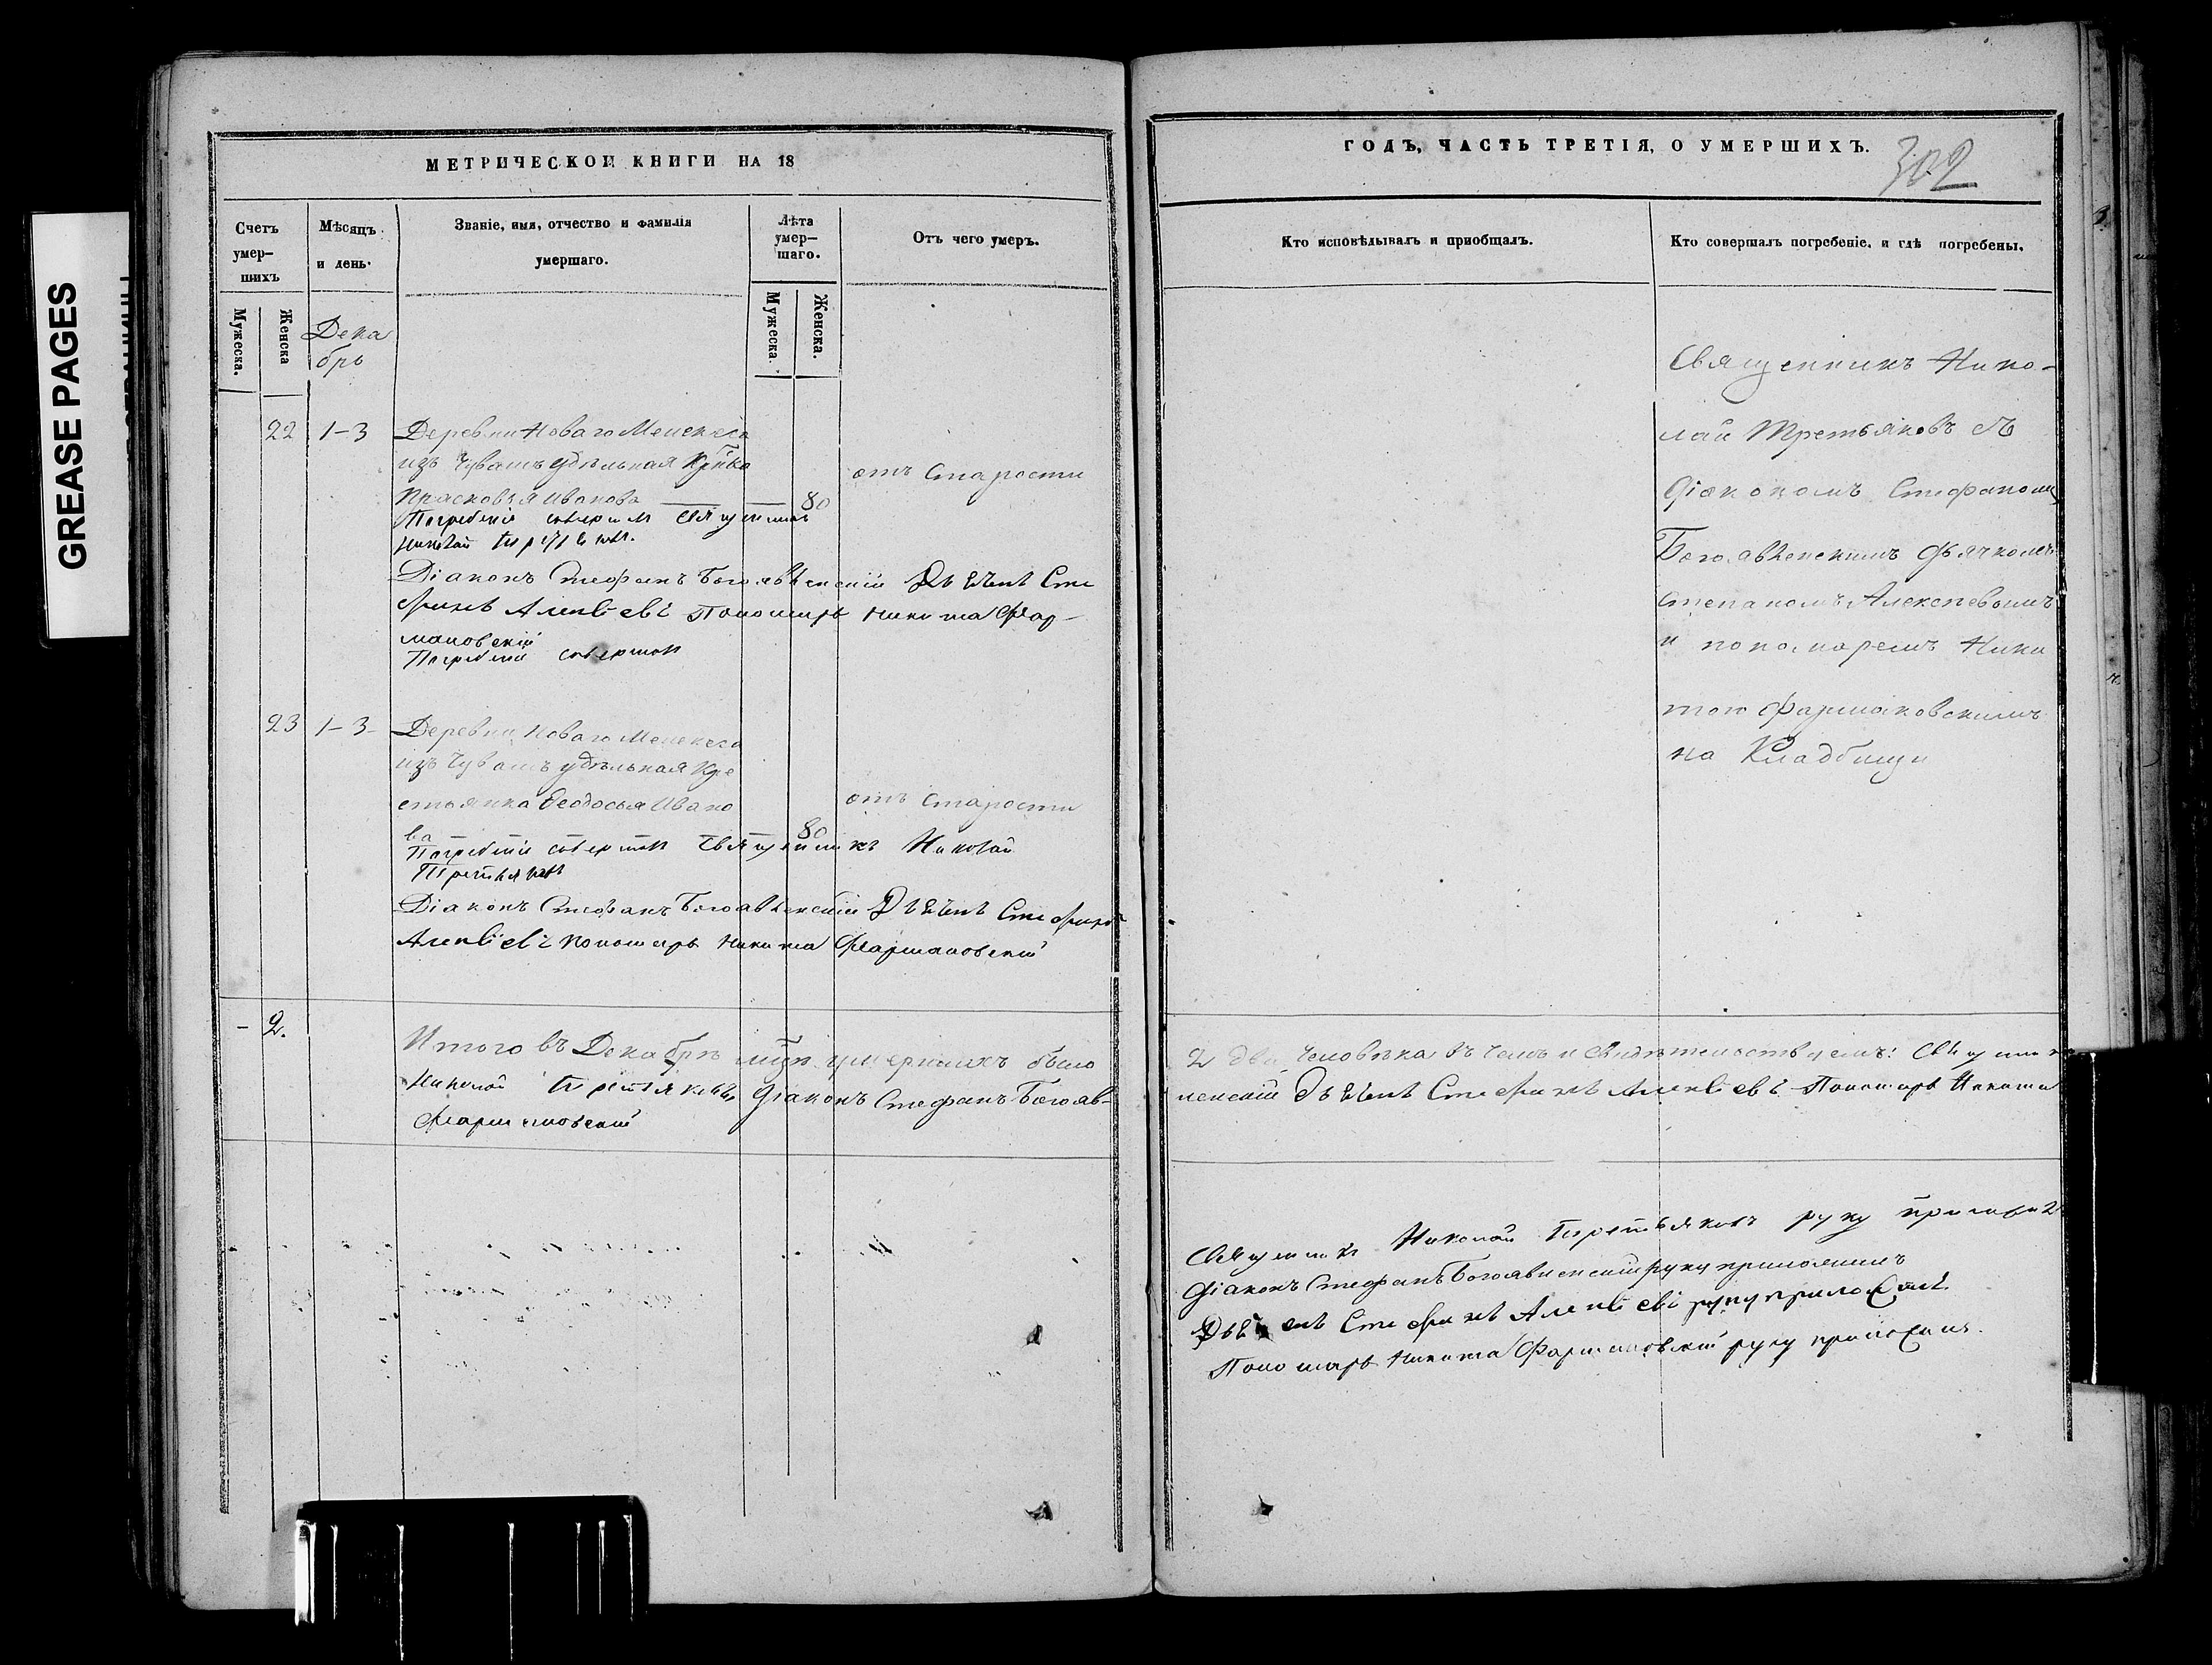 GREASE PAGES
МЕТРИЧЕСКОЙ КНИГИ НА 18
Счетъ умер-шихъ
Мужеска.
Женска
Мѣсяцъ и день.
Званіе, имя, отчество и фамилія умершаго.
Лѣта умер-шаго.
Мужеска.
Женска.
Отъ чего умеръ.
Дека
брь
22 1-3 Деревни Новаго
изъ Чувашъ удѣльная
Прасковья Иванова 80
отъ старости
Погребеніе совершалъ Священникъ
Николай Третьяковъ.
Діаконъ Стефанъ Богоявленскій Дьячекъ Сте
фанъ Алексѣевъ Пономарь Никита Фар-
маковскій
Погребеніе совершали
23 1-3 Деревни Новаго
изъ Чувашъ удѣльная Кре
стьянка Ѳеодосья Ивано
ва 80
отъ старости
Погребеніе совершалъ Священникъ Николай
Третьяковъ
Діаконъ Стефанъ Богоявленскій Дьячекъ Стефанъ
Алексѣевъ Пономарь Никита Фармаковскій
- 2.
Итого въ Декабрѣ мцѣ умершихъ было
Николай Третьяковъ Діаконъ Стефанъ Богояв-
Фармаковскій
ГОДЪ, ЧАСТЬ ТРЕТІЯ, О УМЕРШИХЪ.
302
Кто исповѣдывалъ и пріобщалъ.
Кто совершалъ погребеніе, и гдѣ погребены.
Священникъ Нико-
лай Третьяковъ съ
Діакономъ Стефаномъ
Богоявленскимъ дьячкомъ
Степаномъ Алексѣевымъ
и пономаремъ Ники
тою Фармаковскимъ
на Кладбищи
2 два человѣка въ чемъ и свидѣтельствуемъ: Священникъ
ленскій Дьячекъ Стефанъ Алексѣевъ Пономарь Никита
Священникъ Николай Третьяковъ руку приложилъ
Діаконъ Стефанъ Богоявленскій руку приложилъ
Дьячекъ Стефанъ Алексѣевъ руку приложилъ.
Пономарь Никита Фармаковскій руку приложилъ.